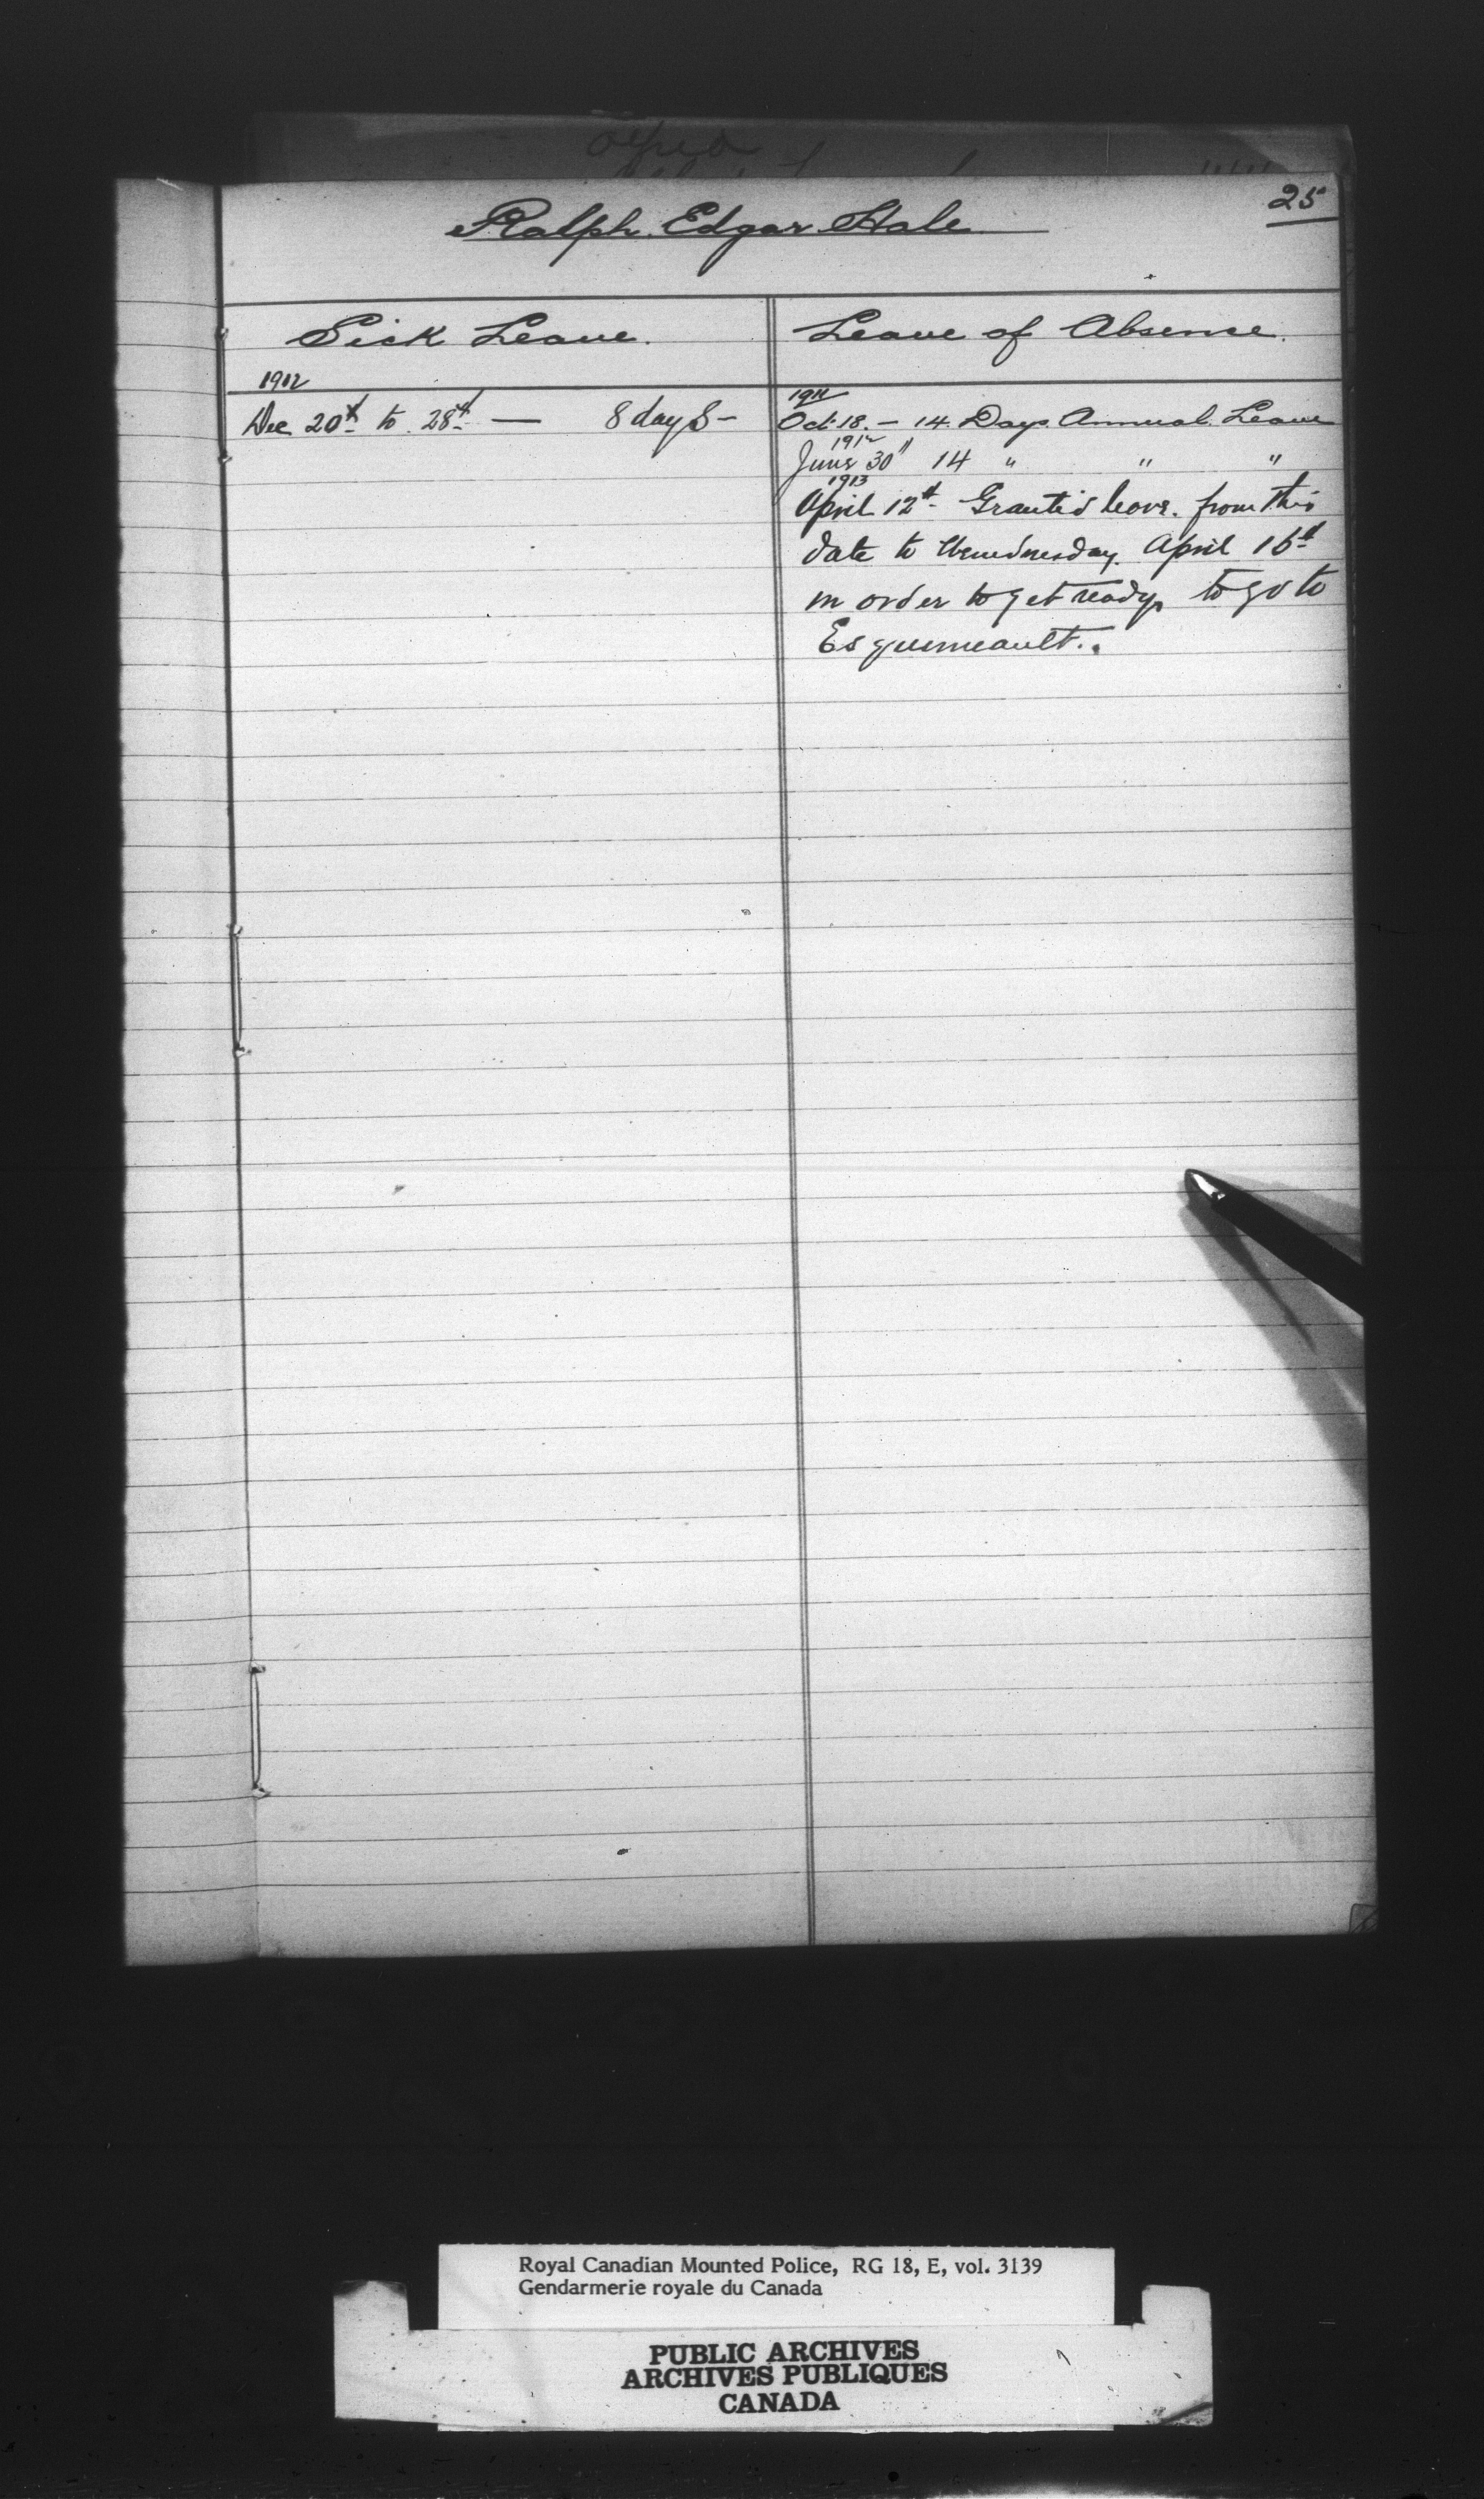 25
Ralph Edgar Hale
Sick Leave.
Leave of Absence.
1912
Dec 20th to 28th — 8 days —
1911
Oct. 18. — 14. Days. Annual. Leave
1912
June 30" 14 " " "
1913
April 12th Granted leave. from this
date to Wenednesday. April 16th
in order to get ready to go to
Esquimeault..
Royal Canadian Mounted Police, RG 18, E, vol. 3139
Gendarmerie royale du Canada
PUBLIC ARCHIVES
ARCHIVES PUBLIQUES
CANADA